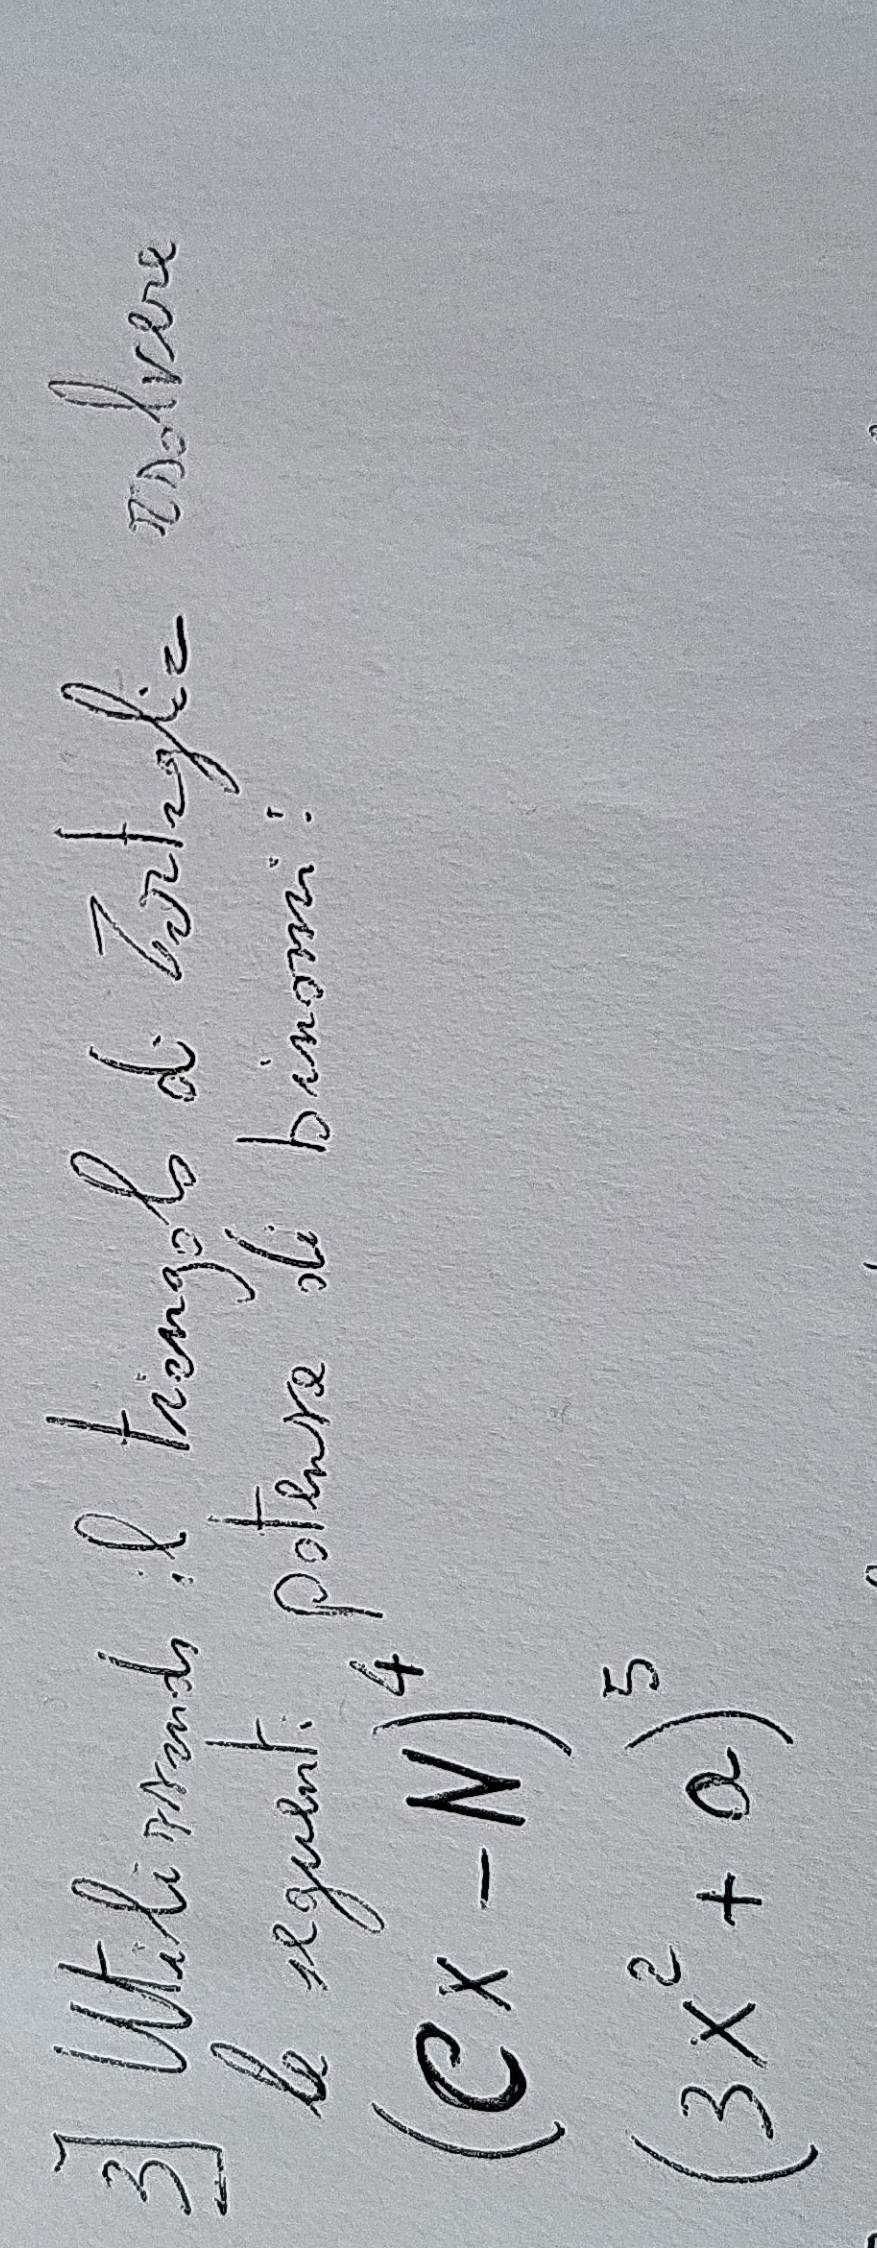 3] Utilizzando il triangolo di Tartaglia risolvere
le seguenti potenze di binomi:
(Cx - N)⁴
(3x² + a)⁵